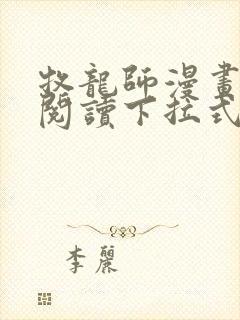 牧龍師漫畫
閱讀下拉式
李麗